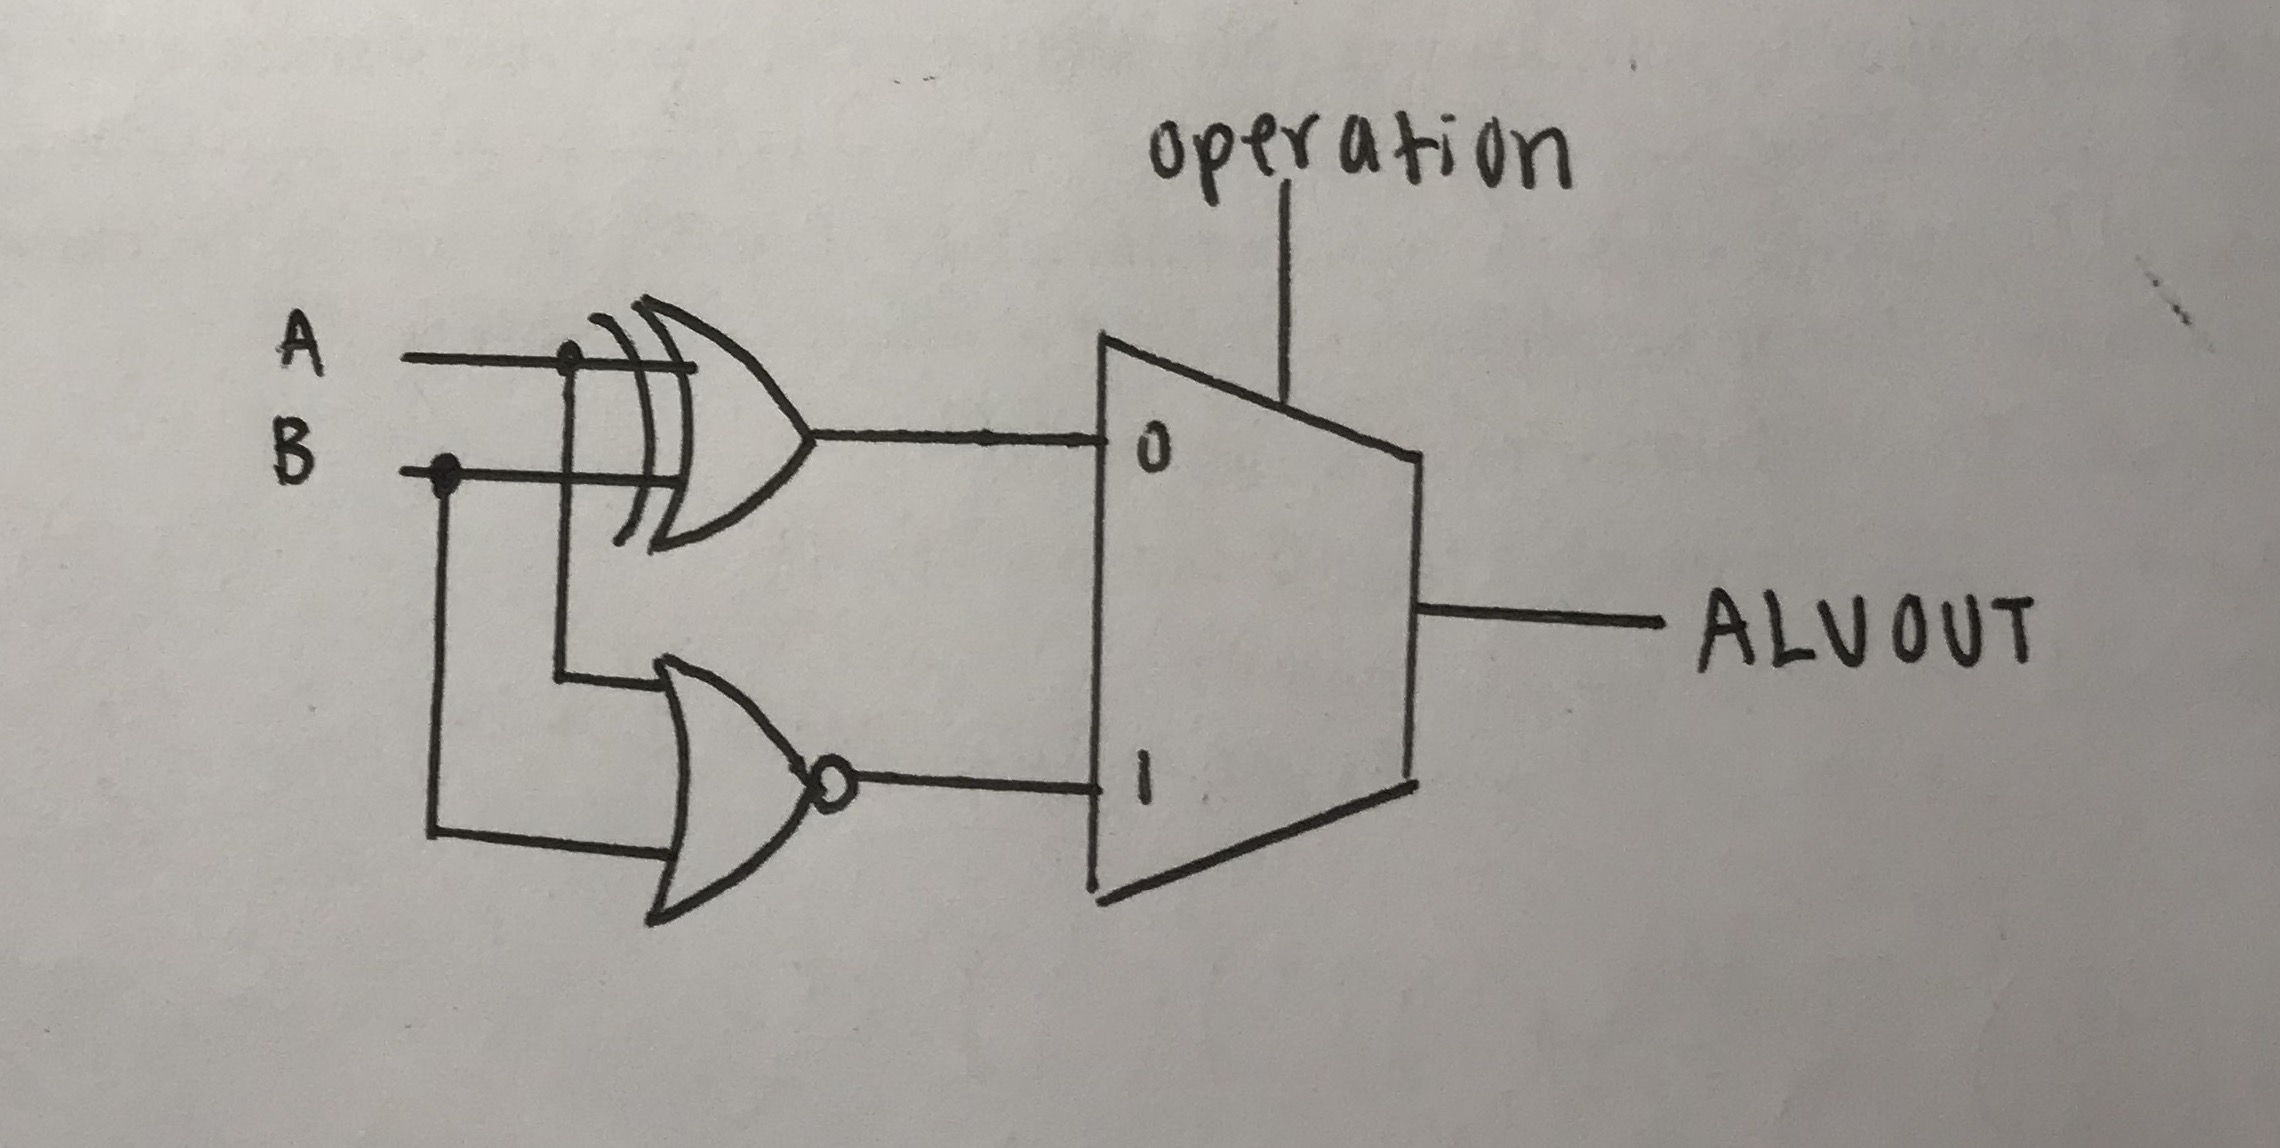 operation
A
B
0
1
ALUOUT